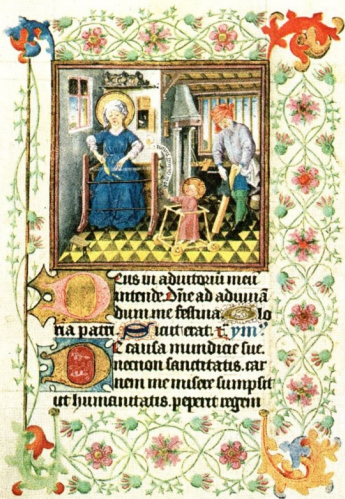 Deus in adiutoriū meū
intende. Dn̄e ad adiuuā
dum me festina. Glo
ria patri. Sicut erat. ym̄
causa mundicie sue
necnon sanctitatis. car
nem me misere sumpsit
ut humanitatis. peperit regem